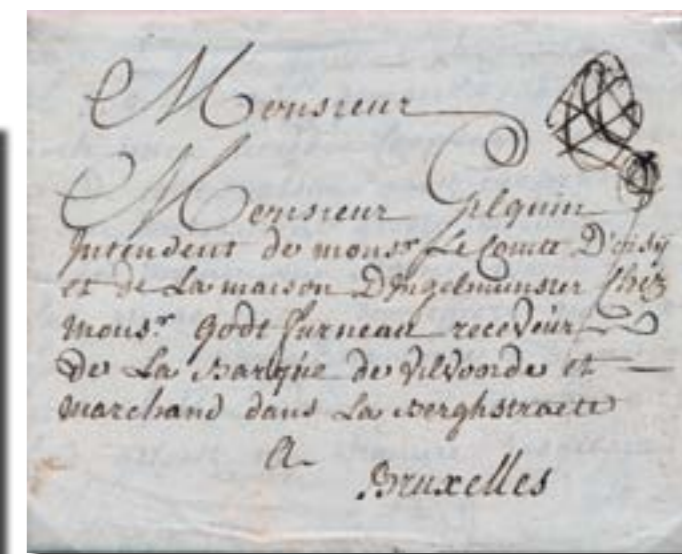 Monsieur
Monsieur Gilquin
Intendent de monsr. Le Comte D'oisÿ
et de La maison D'Ingelmunster Chez
Monsr. Godt furneau receveur
De La Barque de vilvorde et —
Marchand dans La Berghstraete
A
Bruxelles